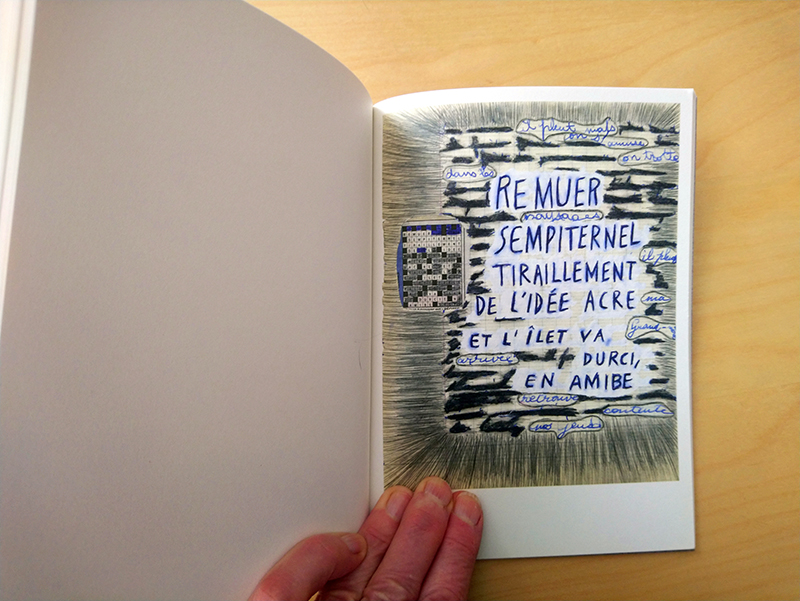 Il pleut mais
on s'amuse
on trotte
dans les
REMUER
paysages
SEMPITERNEL
il pleut
TIRAILLEMENT
DE L'IDÉE ACRE
ma
ET L'ÎLET VA
Grand-
arrivée
DURCI,
EN AMIBE
retrouve
contente
nos jeux